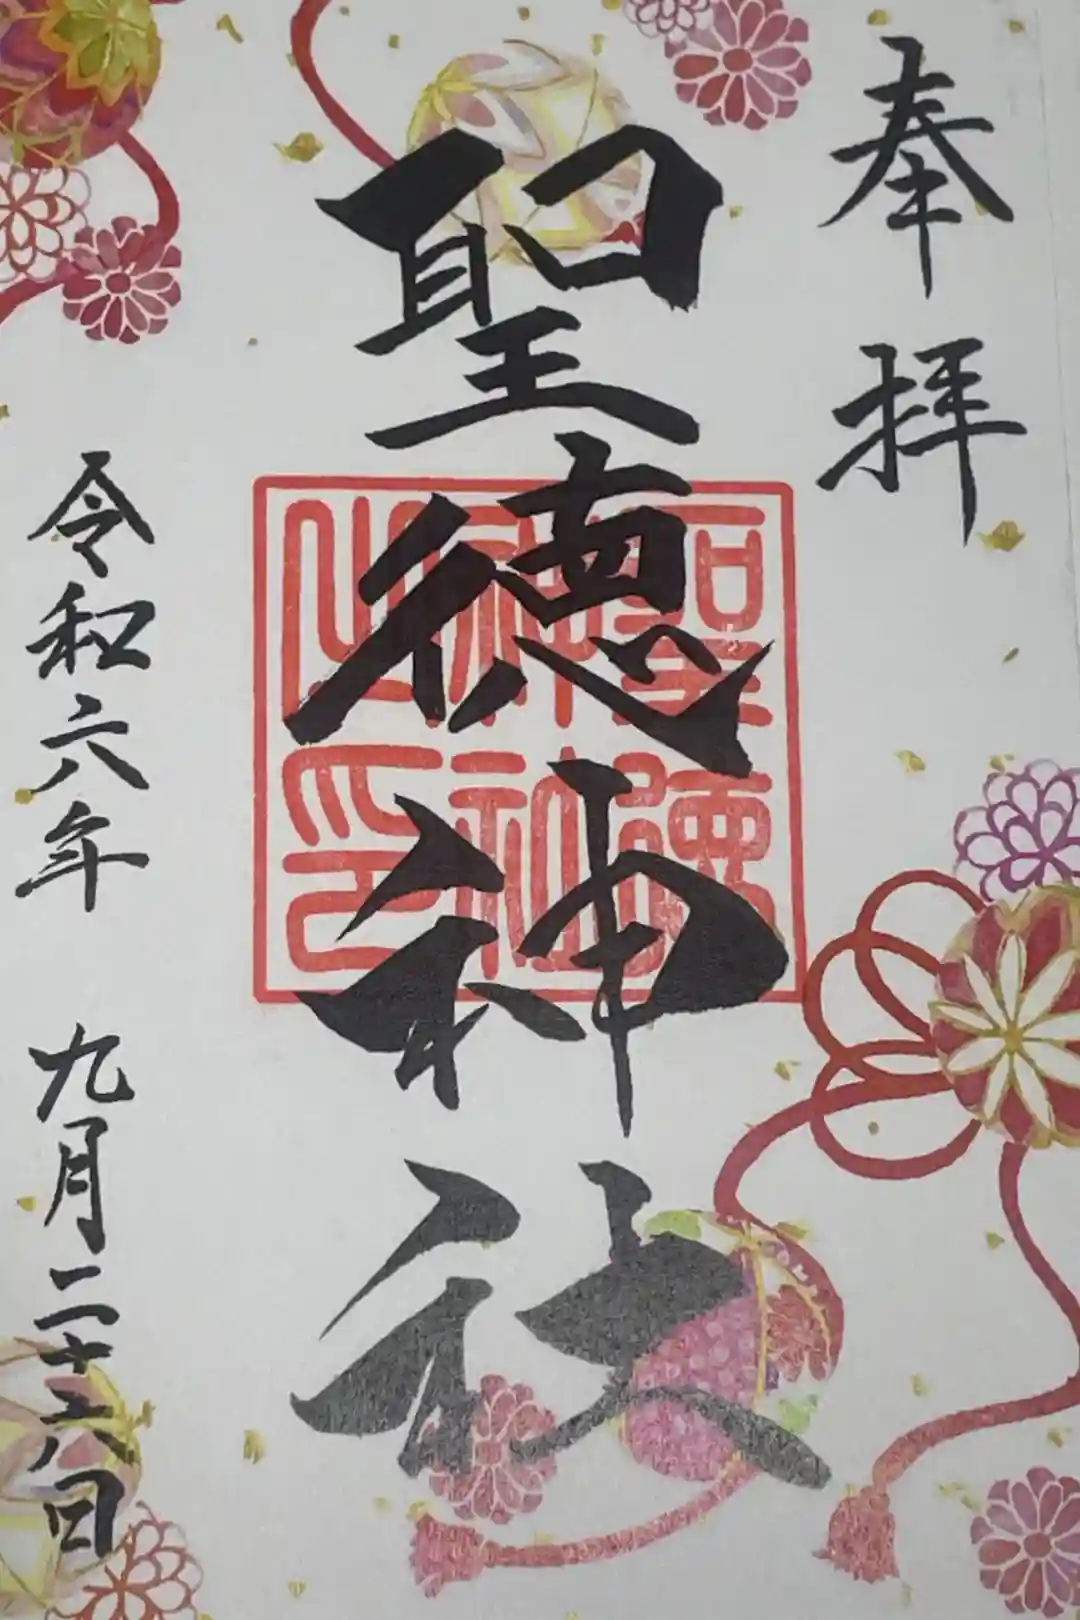 奉拝
聖徳神社
聖徳
神社
之印
令和六年 九月二十六日